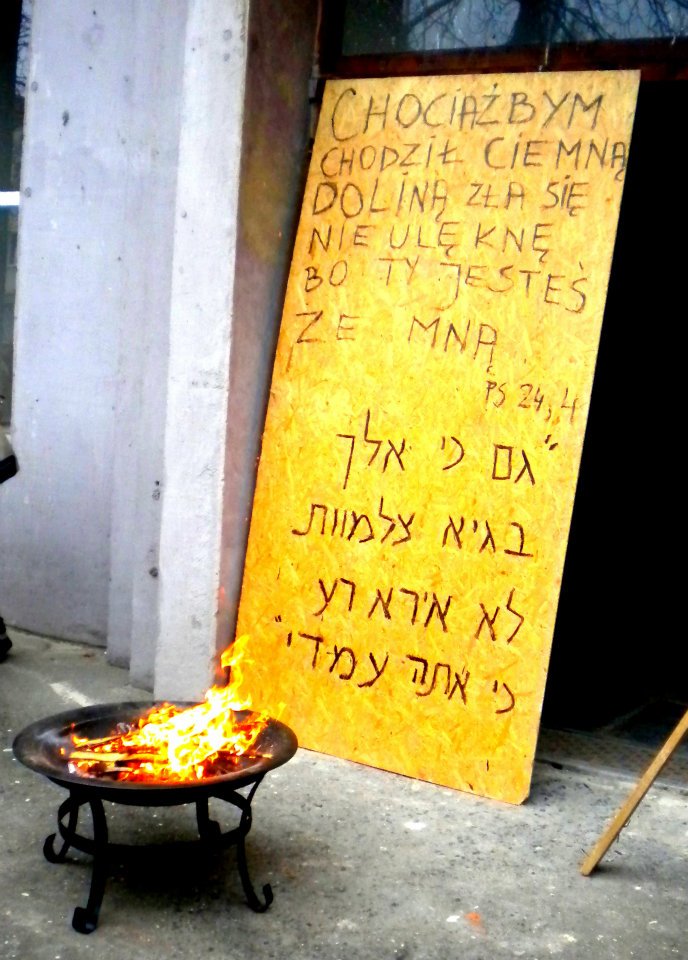 CHOCIAŻBYM
CHODZIŁ CIEMNĄ
DOLINĄ ZŁA SIĘ
NIE ULĘKNĘ
BO TY JESTEŚ
ZE MNĄ
PS 24,4
"גם כי אלך
בגיא צלמוות
לא אירא רע
כי אתה עמדי"